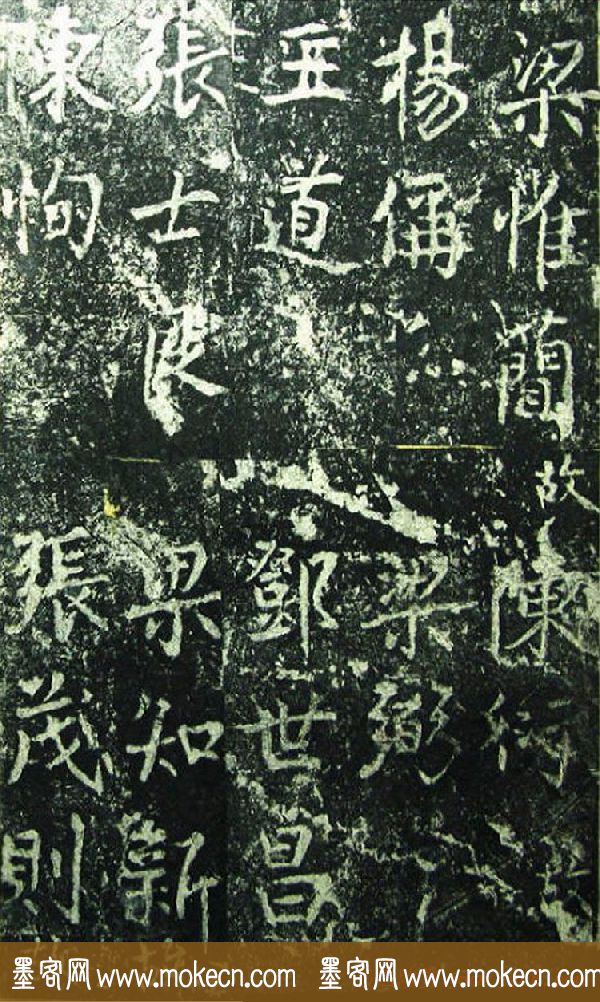 梁惟簡故
陳衍
楊偁
梁弼
王道
鄧世昌
張士良
梁知新
陳恂
張茂則
墨客网 www.mokecn.com 墨客网 www.mokecn.com